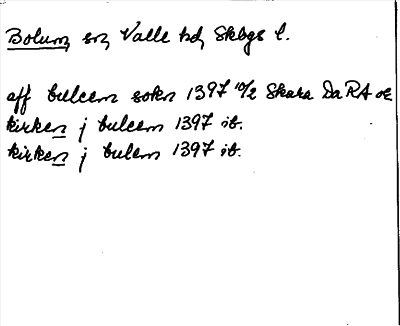 Bolum sn Valle hd Skbgs l.
aff bulcem sokn 1397 10/2 Skara DaRA or
kirken j bulcem 1397 ib.
kirken j bulem 1397 ib.